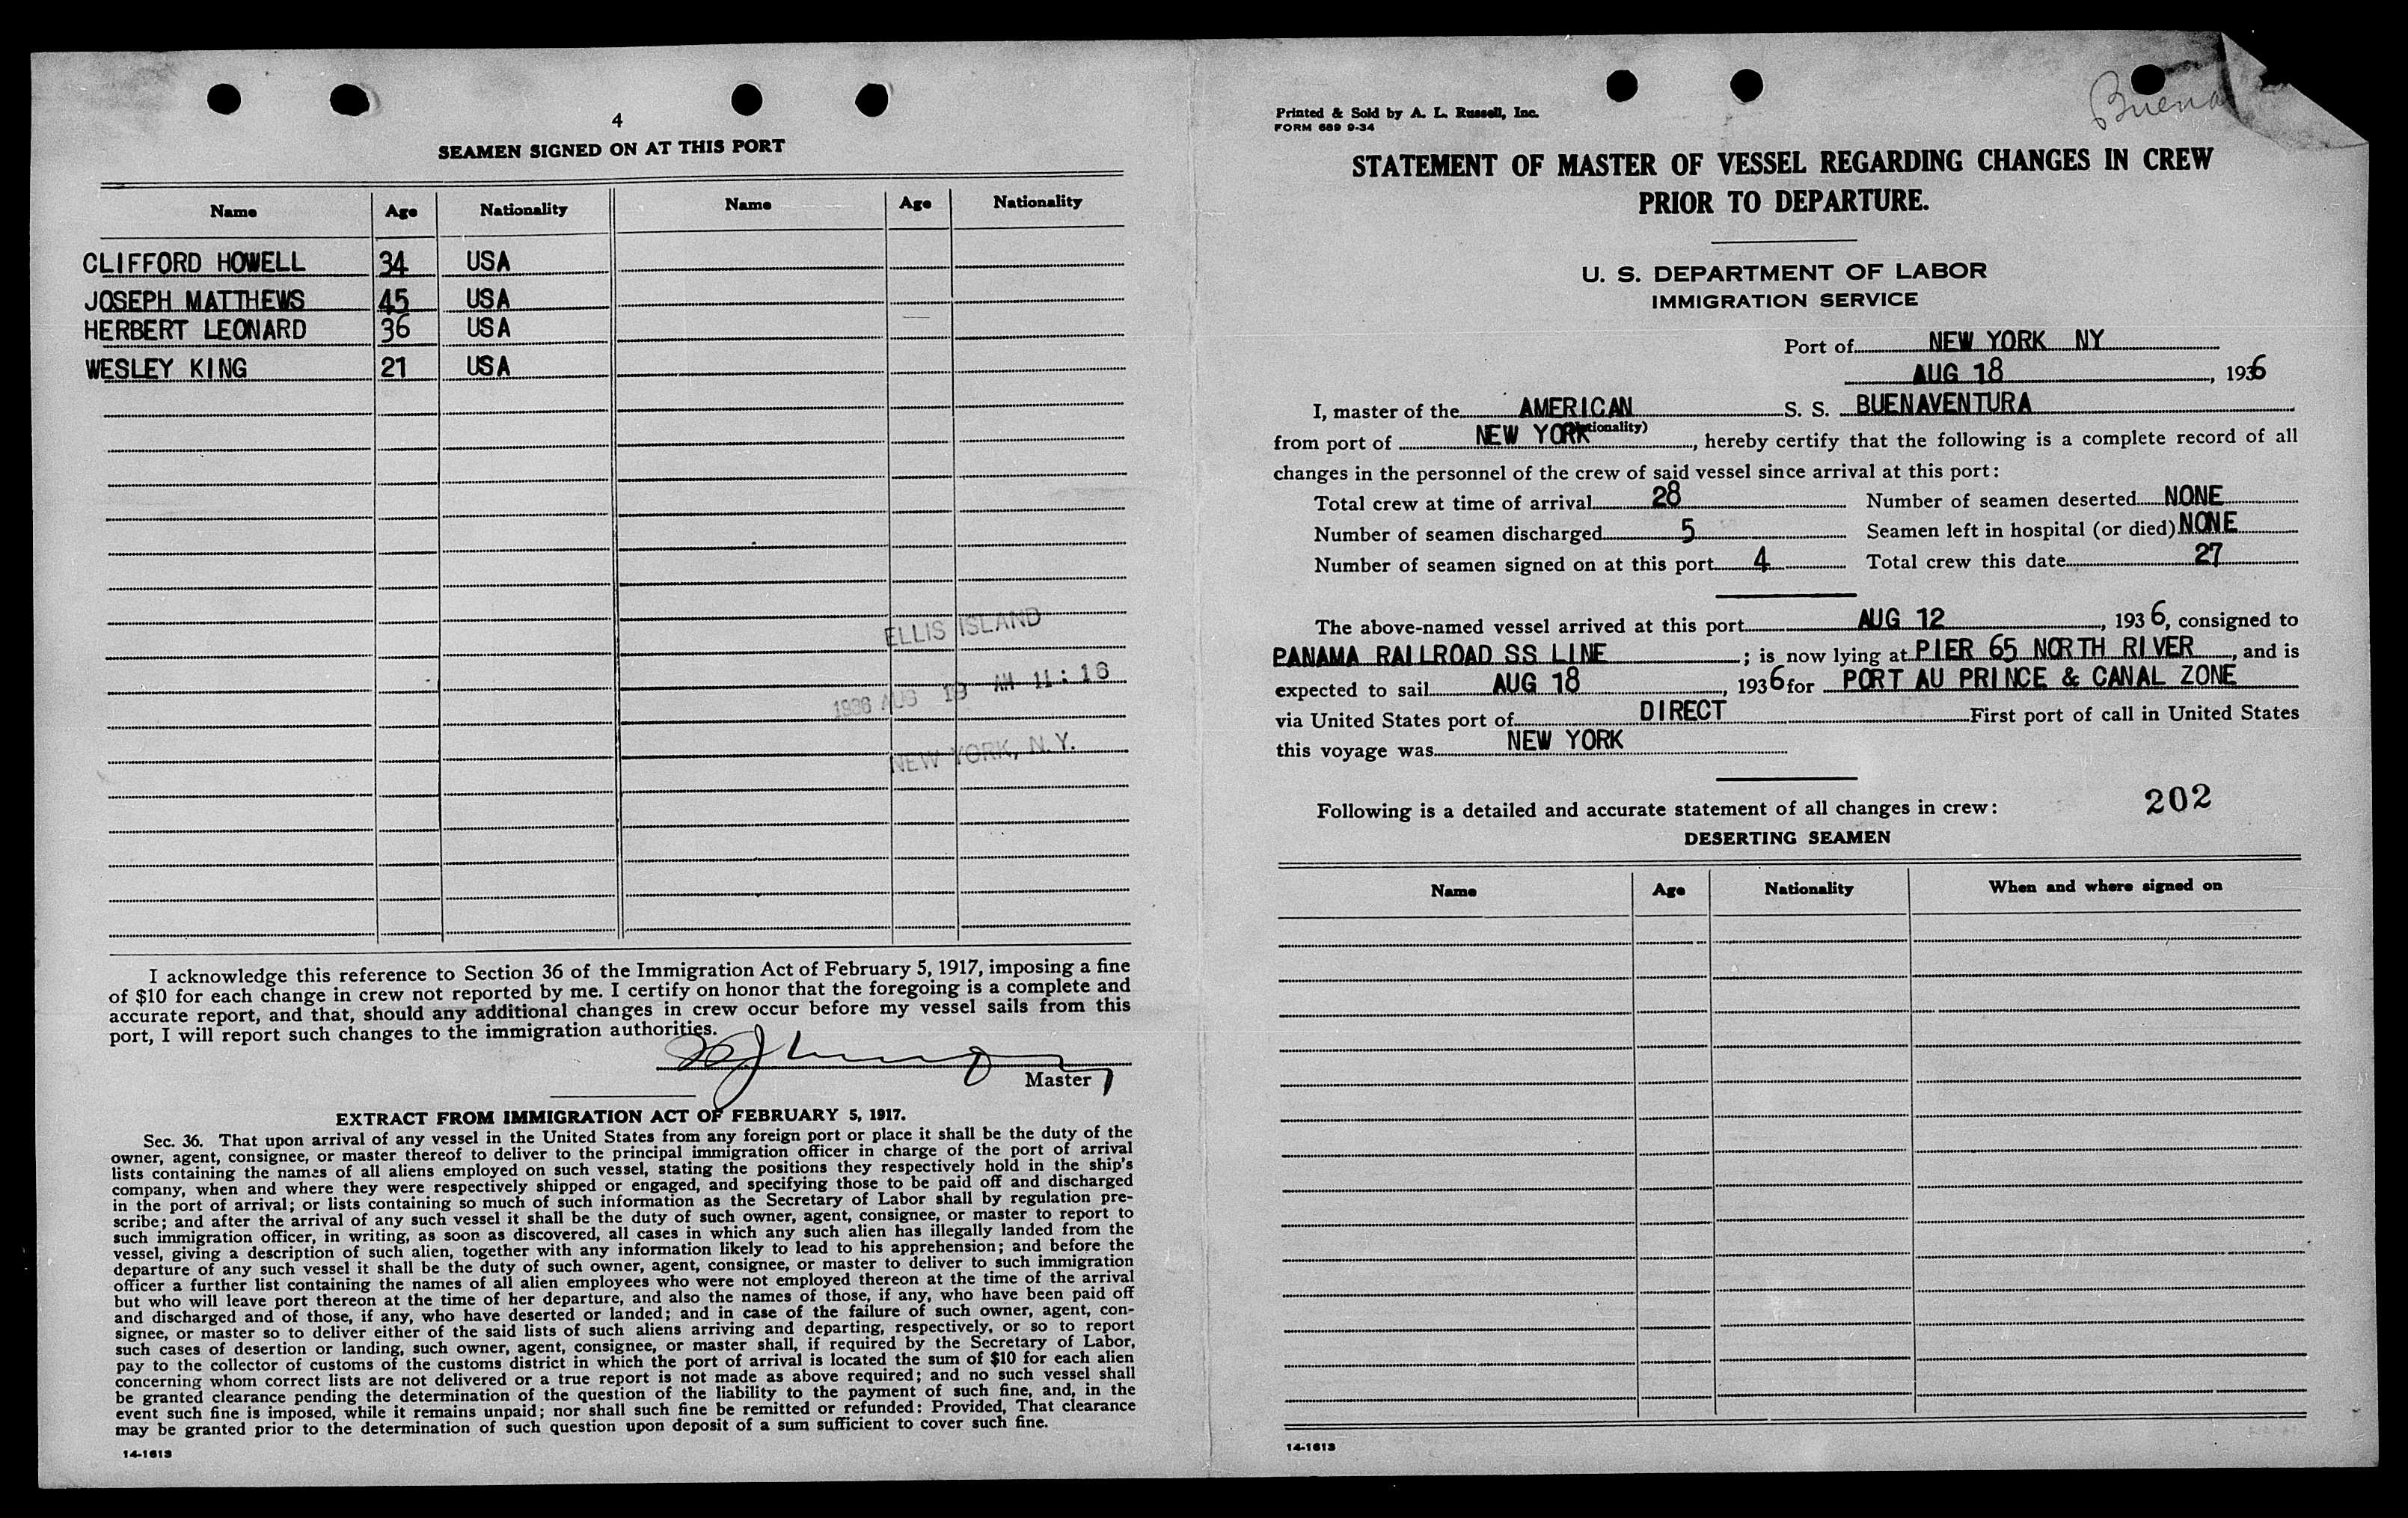 4
SEAMEN SIGNED ON AT THIS PORT
Name Age Nationality Name Age Nationality
CLIFFORD HOWELL 34 USA
JOSEPH MATTHEWS 45 USA
HERBERT LEONARD 36 USA
WESLEY KING 21 USA
ELLIS ISLAND
1936 AUG 19 AM 11:16
NEW YORK, N.Y.
I acknowledge this reference to Section 36 of the Immigration Act of February 5, 1917, imposing a fine
of $10 for each change in crew not reported by me. I certify on honor that the foregoing is a complete and
accurate report, and that, should any additional changes in crew occur before my vessel sails from this
port, I will report such changes to the immigration authorities.
Master
EXTRACT FROM IMMIGRATION ACT OF FEBRUARY 5, 1917.
Sec. 36. That upon arrival of any vessel in the United States from any foreign port or place it shall be the duty of the
owner, agent, consignee, or master thereof to deliver to the principal immigration officer in charge of the port of arrival
lists containing the names of all aliens employed on such vessel, stating the positions they respectively hold in the ship's
company, when and where they were respectively shipped or engaged, and specifying those to be paid off and discharged
in the port of arrival; or lists containing so much of such information as the Secretary of Labor shall by regulation pre-
scribe; and after the arrival of any such vessel it shall be the duty of such owner, agent, consignee, or master to report to
such immigration officer, in writing, as soon as discovered, all cases in which any such alien has illegally landed from the
vessel, giving a description of such alien, together with any information likely to lead to his apprehension; and before the
departure of any such vessel it shall be the duty of such owner, agent, consignee, or master to deliver to such immigration
officer a further list containing the names of all alien employees who were not employed thereon at the time of the arrival
but who will leave port thereon at the time of her departure, and also the names of those, if any, who have been paid off
and discharged and of those, if any, who have deserted or landed; and in case of the failure of such owner, agent, con-
signee, or master so to deliver either of the said lists of such aliens arriving and departing, respectively, or so to report
such cases of desertion or landing, such owner, agent, consignee, or master shall, if required by the Secretary of Labor,
pay to the collector of customs of the customs district in which the port of arrival is located the sum of $10 for each alien
concerning whom correct lists are not delivered or a true report is not made as above required; and no such vessel shall
be granted clearance pending the determination of the question of the liability to the payment of such fine, and, in the
event such fine is imposed, while it remains unpaid; nor shall such fine be remitted or refunded: Provided, That clearance
may be granted prior to the determination of such question upon deposit of a sum sufficient to cover such fine.
14-1613
Printed & Sold by A. L. Russell, Inc.
FORM 689 9-34
Buena
STATEMENT OF MASTER OF VESSEL REGARDING CHANGES IN CREW
PRIOR TO DEPARTURE.
U. S. DEPARTMENT OF LABOR
IMMIGRATION SERVICE
Port of NEW YORK NY
AUG 18, 1936
I, master of the AMERICAN S. S. BUENAVENTURA
from port of NEW YORK, hereby certify that the following is a complete record of all
changes in the personnel of the crew of said vessel since arrival at this port:
Total crew at time of arrival 28 Number of seamen deserted NONE
Number of seamen discharged 5 Seamen left in hospital (or died) NONE
Number of seamen signed on at this port 4 Total crew this date 27
The above-named vessel arrived at this port AUG 12, 1936, consigned to
PANAMA RAILROAD SS LINE; is now lying at PIER 65 NORTH RIVER, and is
expected to sail AUG 18, 1936 for PORT AU PRINCE & CANAL ZONE
via United States port of DIRECT First port of call in United States
this voyage was NEW YORK
Following is a detailed and accurate statement of all changes in crew: 202
DESERTING SEAMEN
Name Age Nationality When and where signed on
14-1613